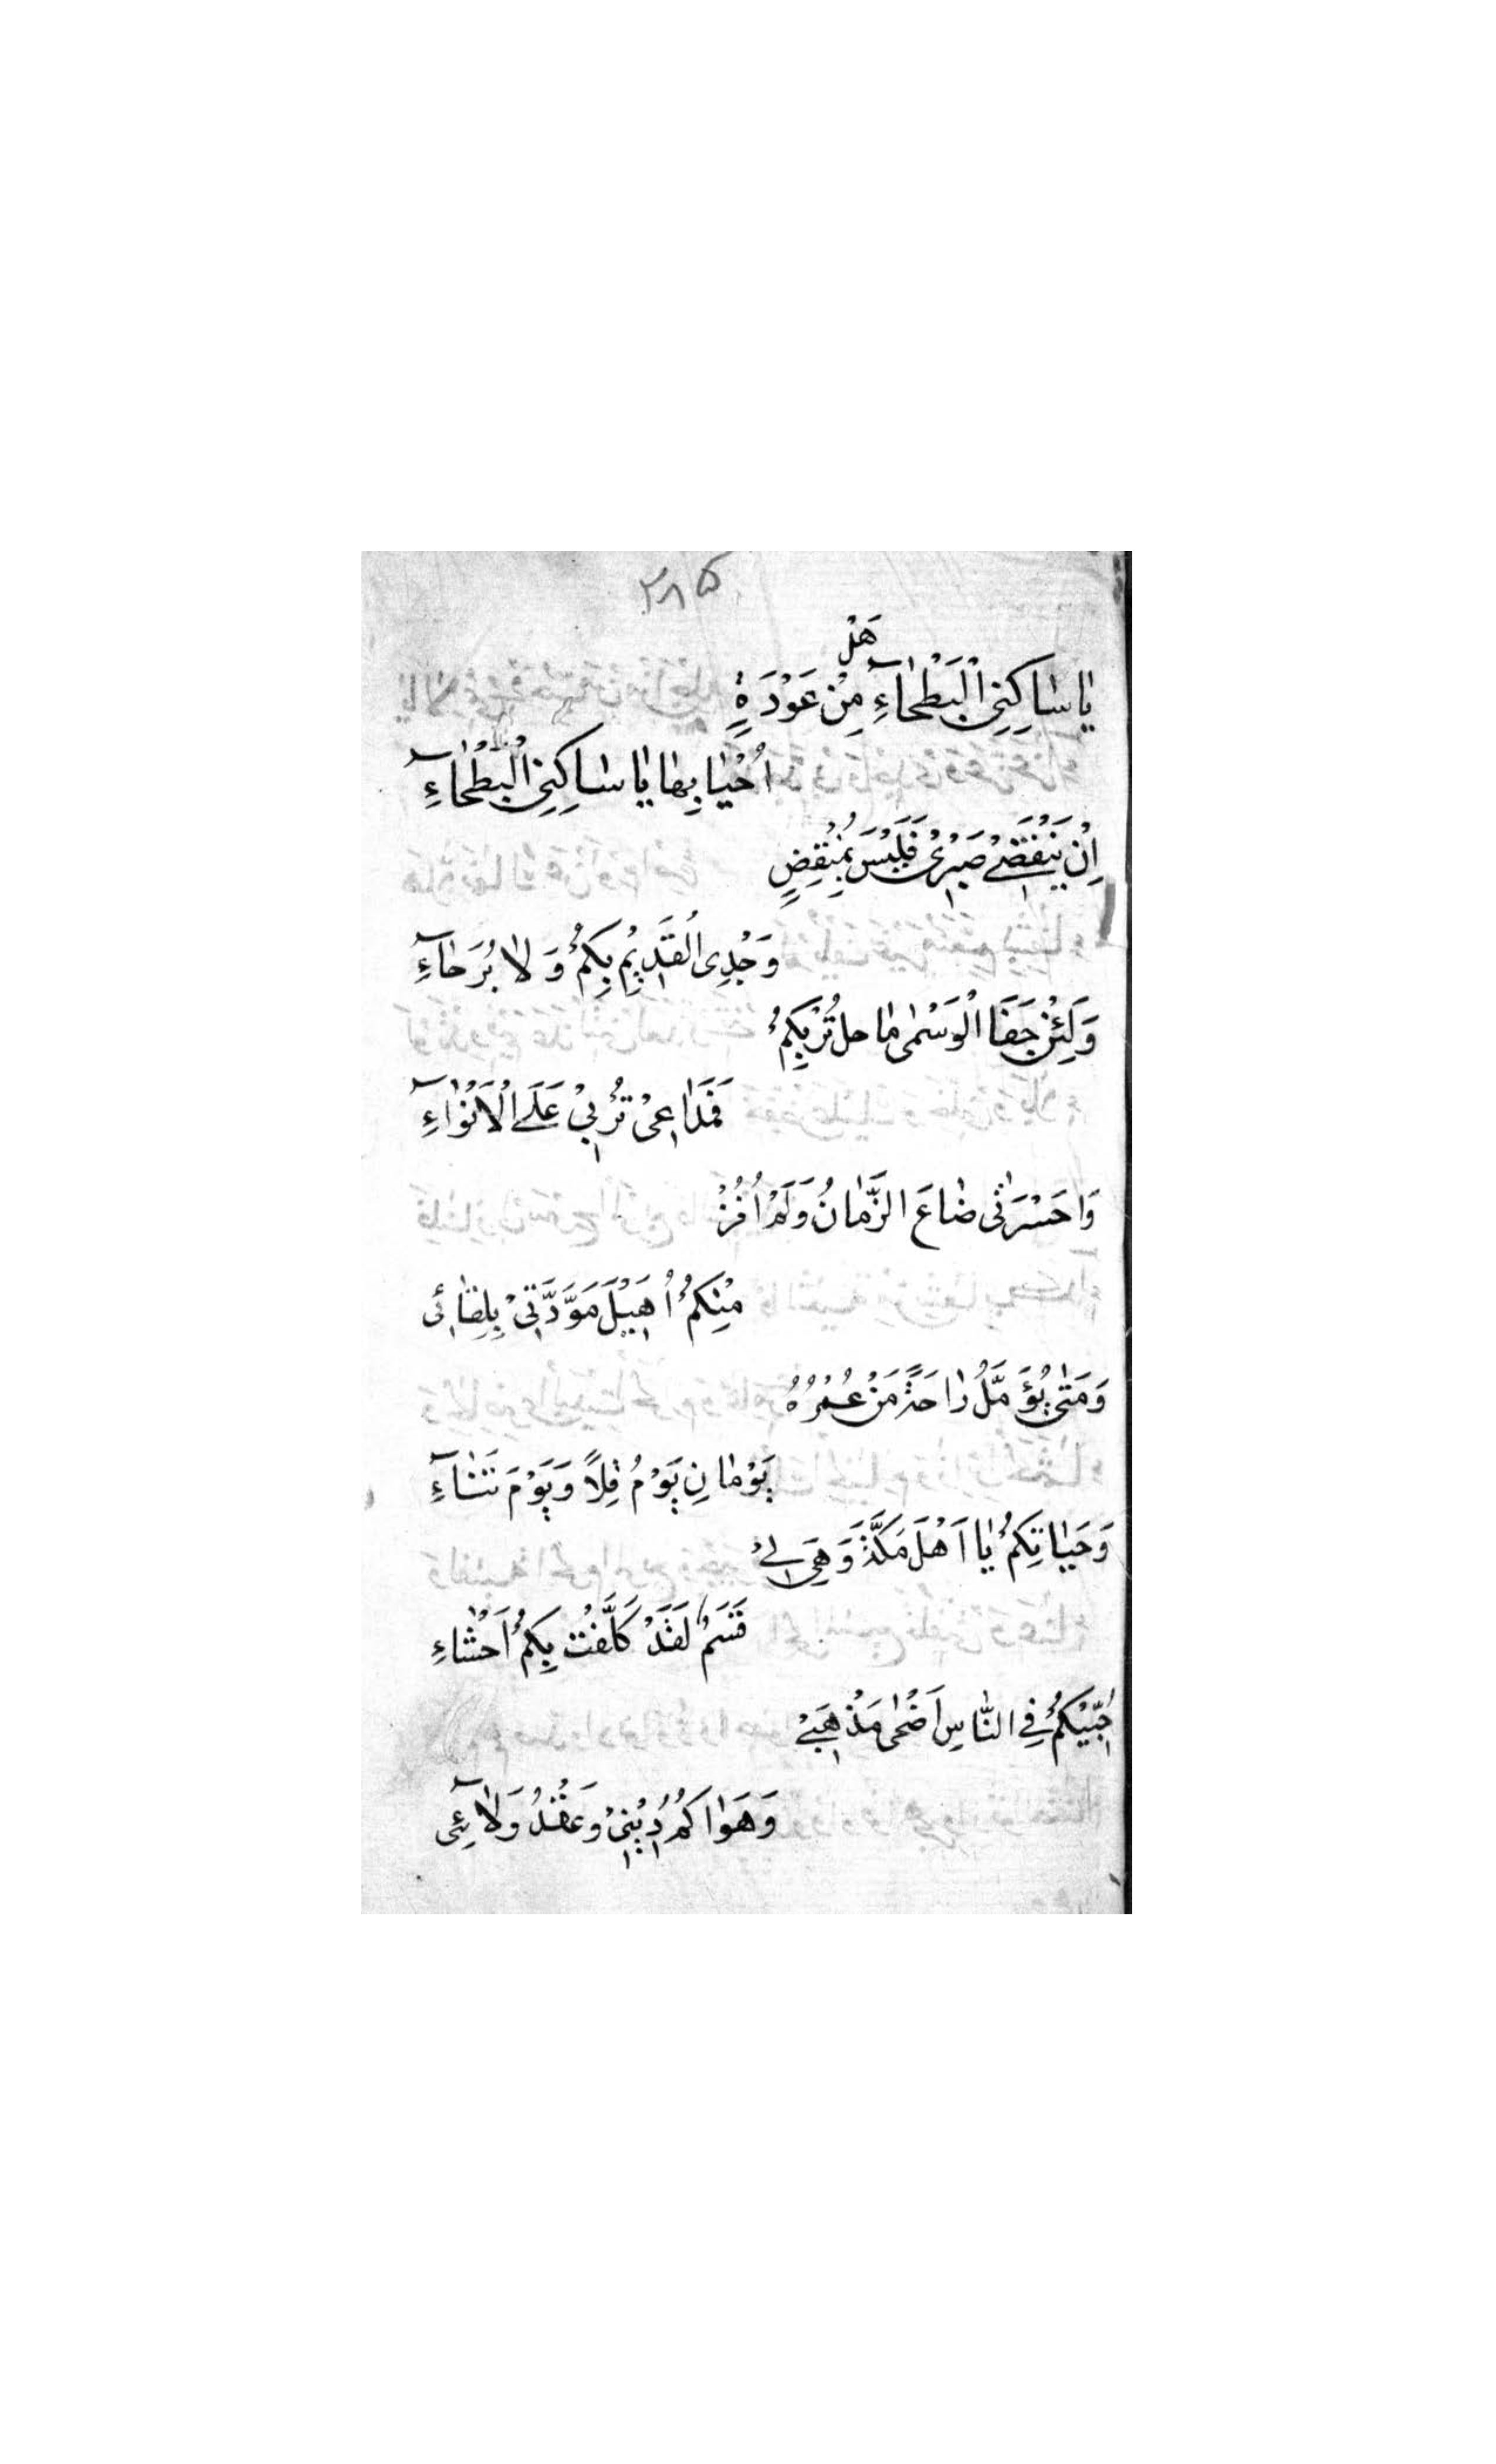 ٢٨۵
هَلْ
يٰا سٰاكِنِى الْبَطْحٰآءِ مِنْ عَوْدَةٍ
اُحْيٰا بِهٰا يٰا سٰاكِنِى الْبَطْحٰآءِ
اِنْ يَنْقَضِے صَبْرِىْ فَلَيْسَ بِمُنْقِضٍ
وَجْدِى الْقَدِيْمُ بِكُمْ وَلٰا بُرَحٰآءِ
وَلَئِنْ جَفَا الْوَسْمٰى مٰا حل تُرْبِكُمْ
فَمَدٰا عِىْ تُرْبِيْ عَلَے الْاَنْوٰآءِ
وَا حَسْرَتٰى ضٰاعَ الزَّمٰانُ وَلَمْ اُفُزْ
مِنْكُمْ اُهَيْلَ مَوَدَّتِىْ بِلِقٰائِى
وَمَتٰى يُؤَمَّلُ رٰاحَةً مَنْ عُمْرُهُ
يَوْمٰانِ يَوْمُ قِلاً وَيَوْمَ تَنٰآءِ
وَحَيٰاتِكُمْ يٰا اَهْلَ مَكَّةَ وَهِىَ لےْ
قَسَمٌ لَقَدْ كَلَّفْت بِكُمْ اَحْشٰاءِ
حُبِّيْكُمْ فِى النّٰاسِ اَضْحٰى مَذْهَبےْ
وَهَوٰاكُمْ دِيْنِىْ وَعَقْدُ وَلٰآئِى